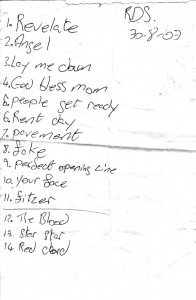 RDS.
30-8-03
1. Revelate
2. Angel
3. Lay me down
4. God bless mom
5. people get ready
6. Rent day
7. pavement
8. Fake
9. perfect opening Line
10. Your face
11. Fitzer
12. The Blood
13. Star Star
14. Red chord